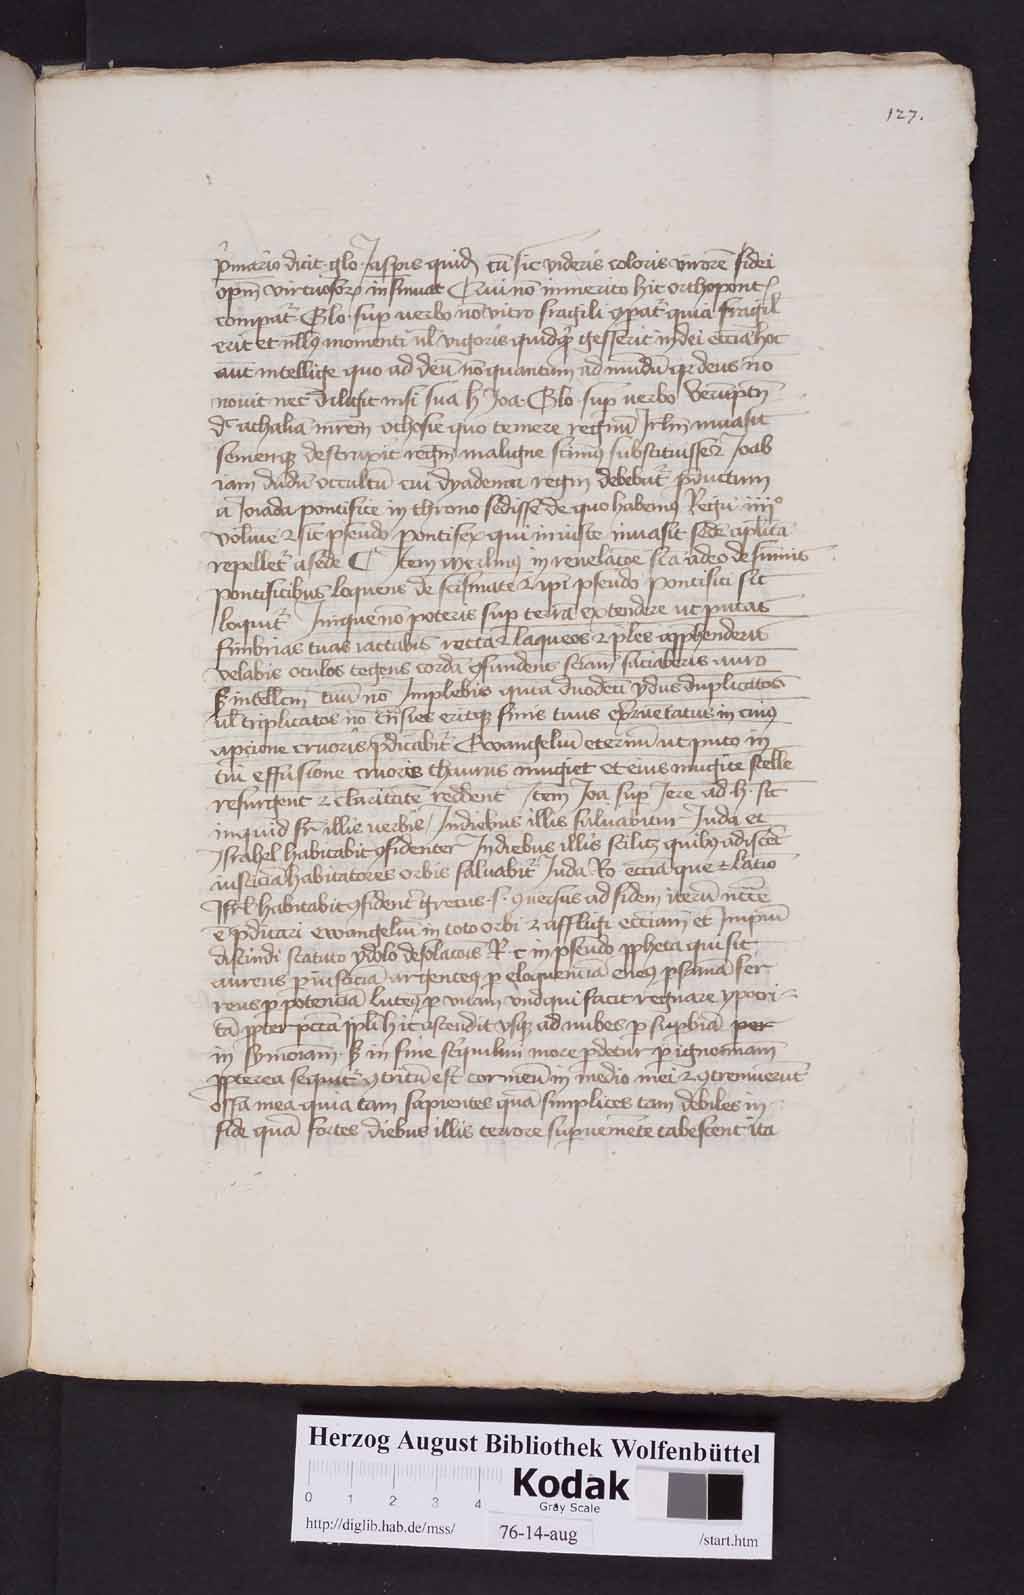 127.
p̄mario dicit glo Jaspis quid̄ cū sic videris coloris virorē fidei
opm̄ virtuosorꝫ insinuat Cui nō inmerito hic orthopont
compat̄ Glo sup verbo nō vitro fragili ꝯpat̄ quia fragil
erit et nllꝰ momenti vl vigoris quidqͥd gesserit in dei eccīa hoc
aut̄ intellige quo ad deū nō quantum ad mūdū qꝛ deus nō
novit nec diligit nisi sua h Joa Glo sup verbo Verūptn̄
d͛ athalia mrem̄ ochosie quo temere regnū Jrlm̄ inuasit
semenqꝫ destruxit regm̄ maligne scimꝰ substituisse ⁊ Joab
iam dudū occultū cui dyadema regm̄ debebat̄ pductum
a Joiada pontifice in throno sedisse de quo habemꝰ Regū iiii°
volūe ⁊ sic pseudo pontifex qui iniuste inuasit sedē aplicā
repellet̄ a sede C Item merlinꝰ in reuelacōe sua adeo de summis
pontificibus loquens de scismate ⁊ ipi pseudo pontifici sic
loquit̄ Inique nō poteris sup terrā extendere ut putas
fimbrias tuas iactabis rectia ⁊ laqueos ⁊ ples apphenderis
velabis oculos tegens corda ꝯfundens fraꝫ saciaberis auro
sꝫ intellcm̄ tuū nō Implebis quia duodeci ydus duplicatos
vl triplicatos nō trāsies eritqꝫ finis tuus in cuiꝰ
apcione cruoris pdicabit̄ Ewangeliū eternū ut puto in
tui effusione cruoris thaurus mugiet et eius mugitu stelle
resurgent ⁊ claritatē reddent Item Joa sup Jere ad h sic
inquid sr̄ illis verbis Indiebus illis saluabitur Juda et
Israhel habitabit ꝯfidenter Indiebus illis scilicꝫ quibꝰ adiscēt
iusticiā habitatores orbis saluabit̄ Juda Ro eccīa que ⁊ latio
Isrl̄ habitabit ꝯfident̄ grecus .s. ꝯuersus ad fidem iterū necc̄e
ē pdicari ewangeliū in toto orbi ⁊ affligi eccīam et Impiū
discindi statuto ydolo desolacōis R c in pseudo ppheta qui sit
aureus p iusticiā argenteꝰ p eloquenciā eneꝰ p famā fer
reus p potenciā luteꝰ p vitam vndqui facit regnare ypocri
tā ppter pctā ppli hic ascendit vsqꝫ ad nubes p supbiā per
in symoniam sꝫ in fine sꝑquilini more pdetur p ignomīam
ppterea sequit̄ ꝯtritū est cor meū in medio mei ⁊ ꝯtremuerūt
ossa mea quia tam sapientes quā simplices tam debiles in
fide quā fortes diebus illis terrore supuemēte tabescent ita
Herzog August Bibliothek Wolfenbüttel
0 1 2 3 4
Kodak
Gray Scale
http://diglib.hab.de/mss/
76-14-aug
/start.htm